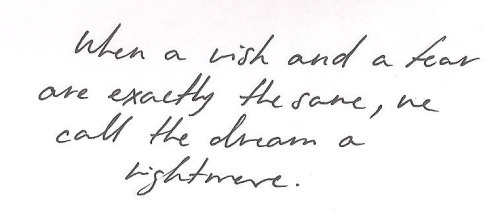 When a wish and a fear
are exactly the same, we
call the dream a
nightmare.